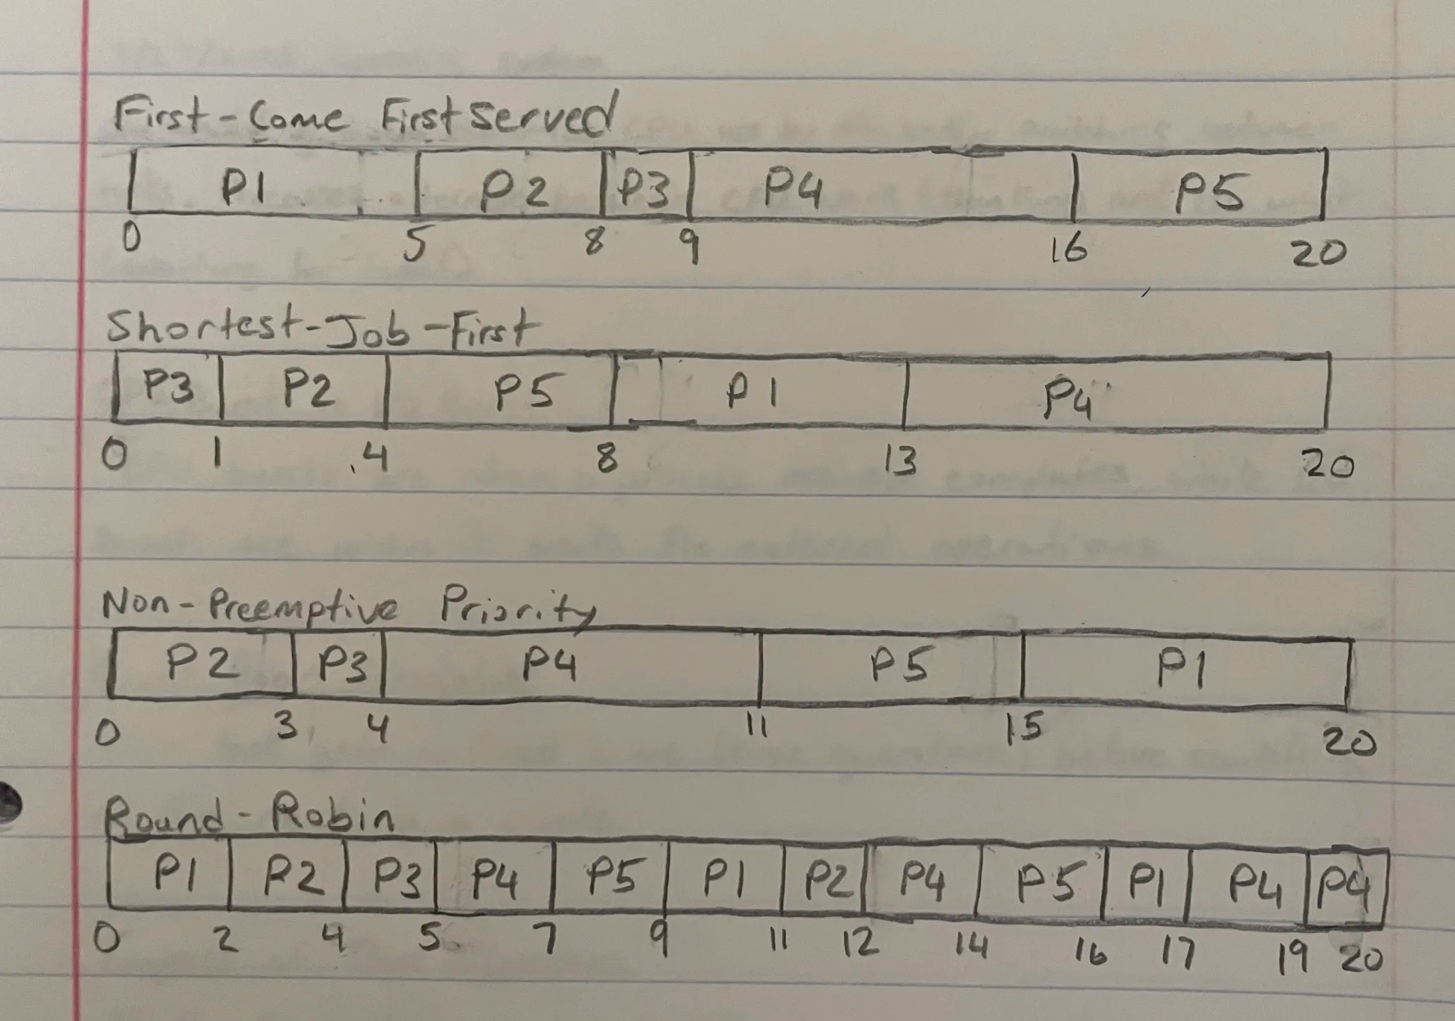 First-Come First Served
P1 P2 P3 P4 P5
0 5 8 9 16 20
Shortest-Job-First
P3 P2 P5 P1 P4
0 1 4 8 13 20
Non-Preemptive Priority
P2 P3 P4 P5 P1
0 3 4 11 15 20
Round-Robin
P1 P2 P3 P4 P5 P1 P2 P4 P5 P1 P4 P4
0 2 4 5 7 9 11 12 14 16 17 19 20